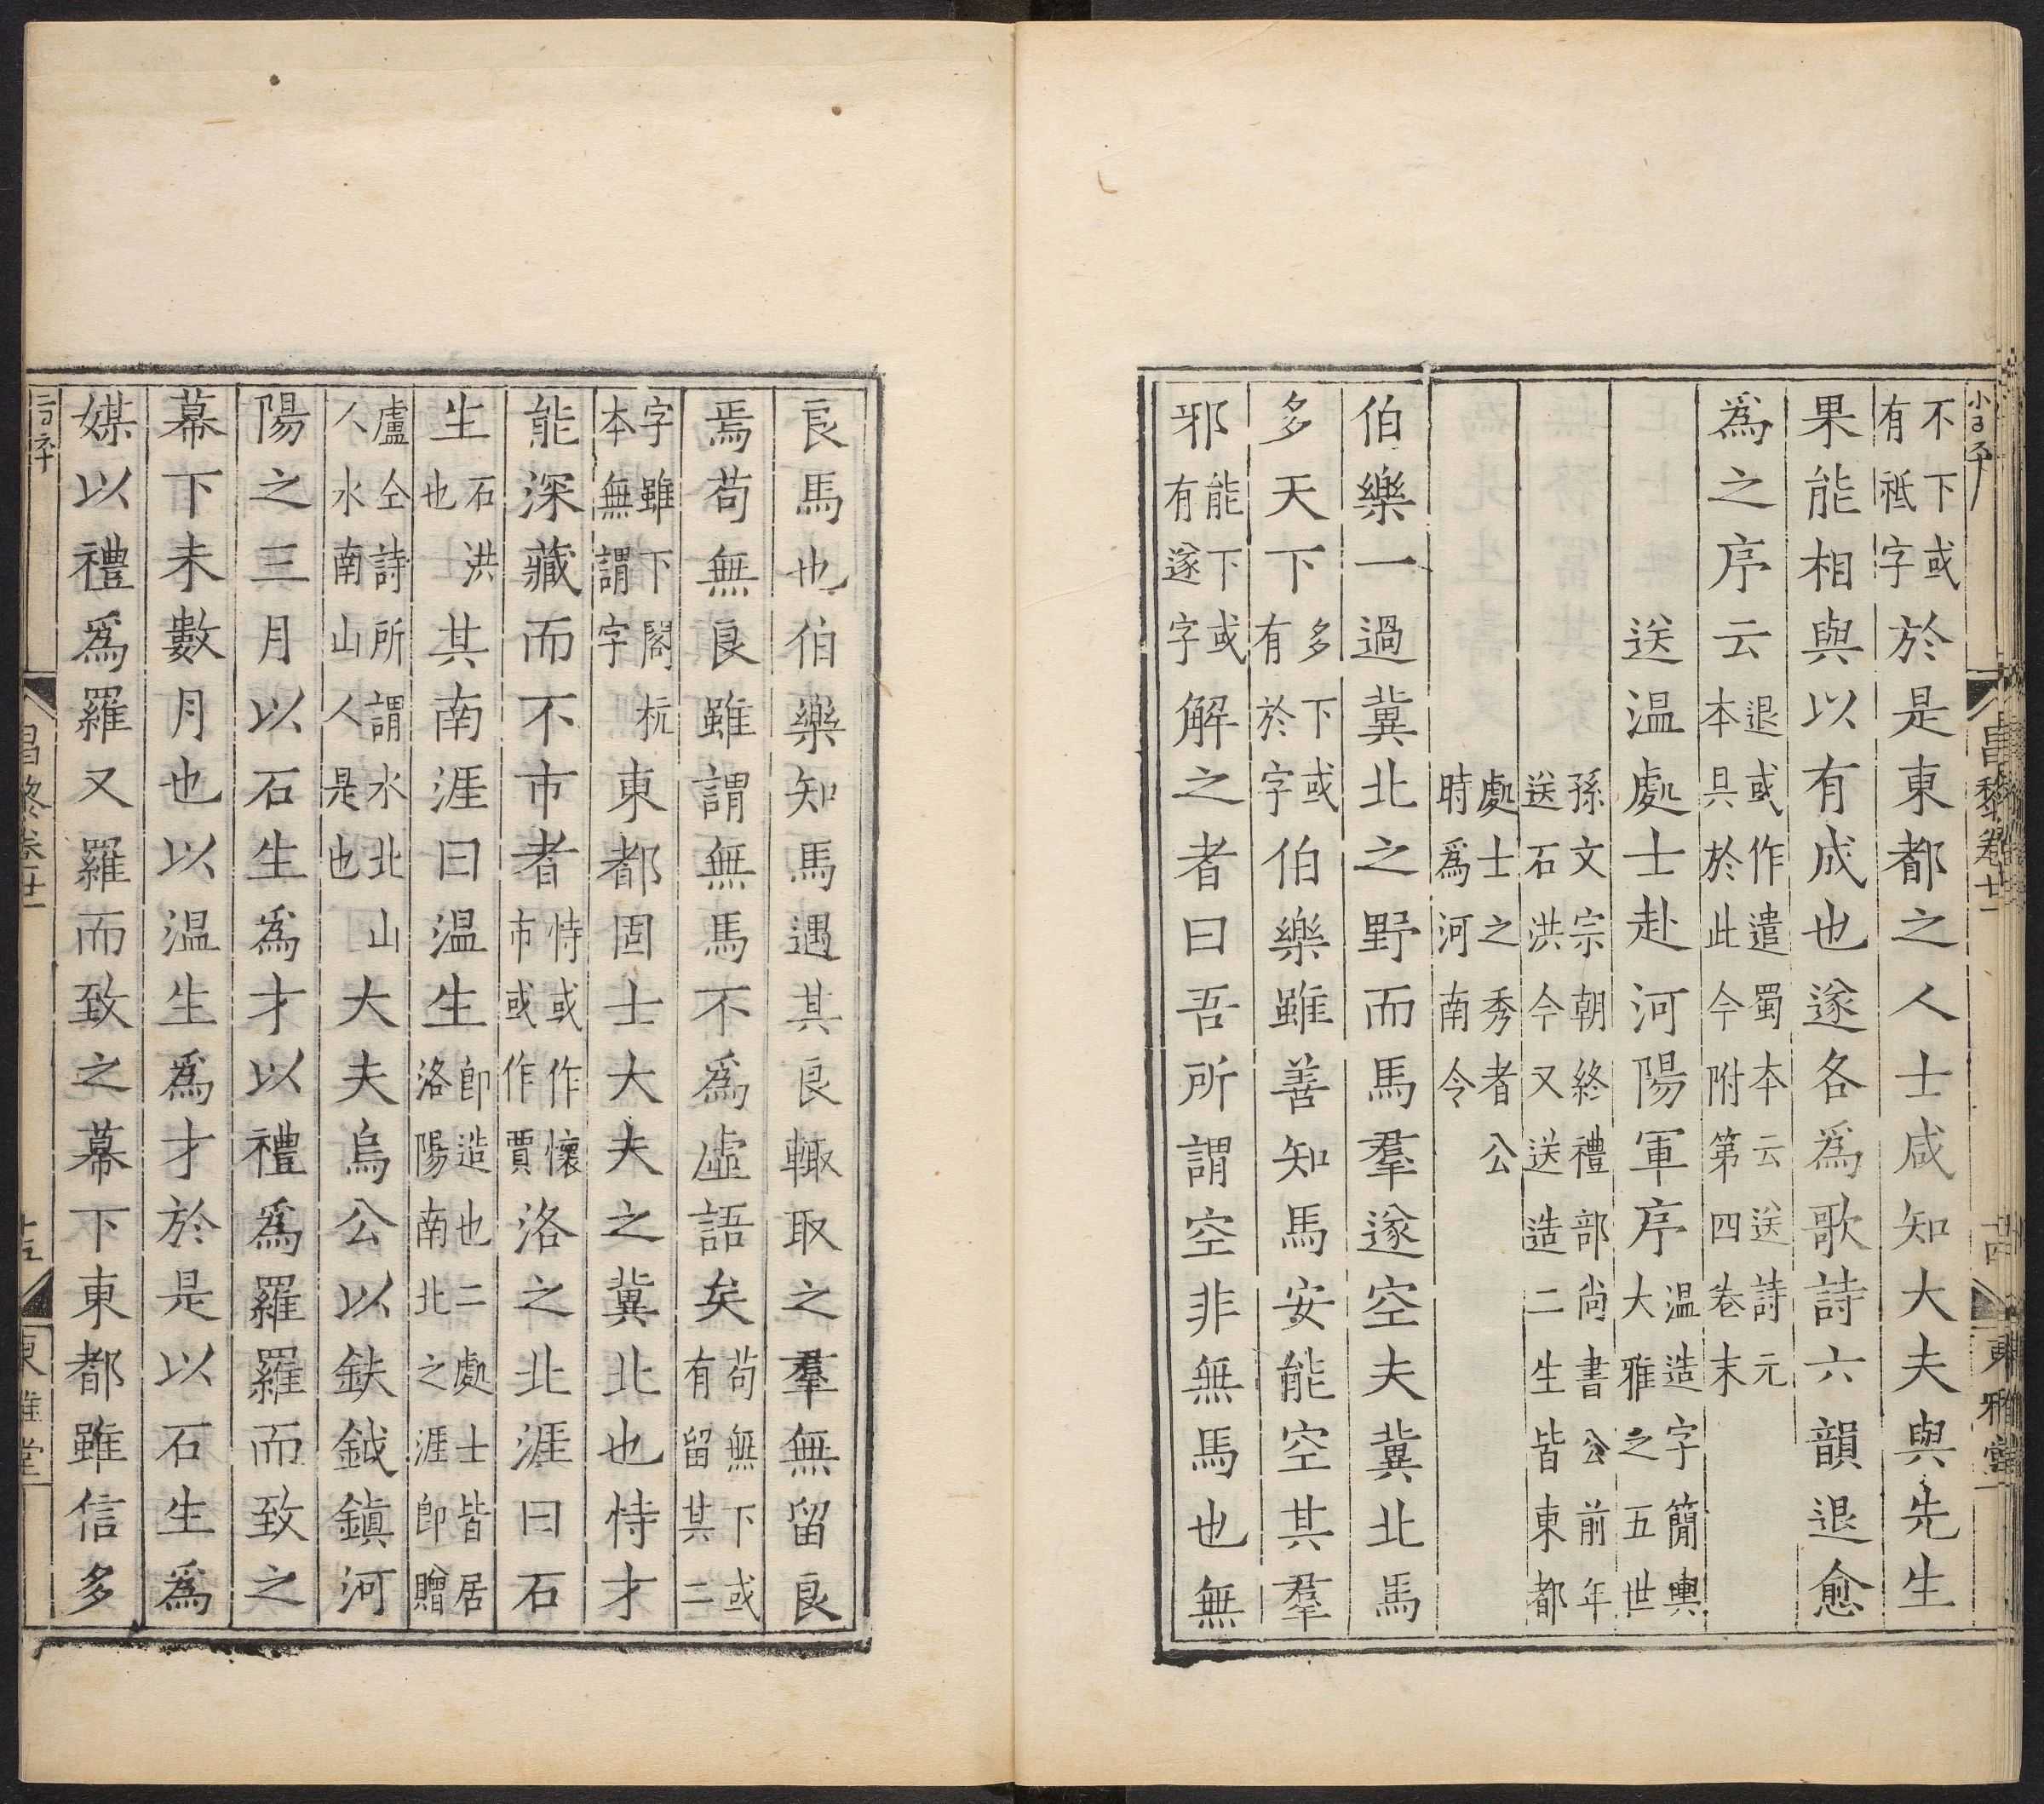 不下或有祗字於是東都之人士咸知大夫與先生
果能相與以有成也遂各爲歌詩六韻退愈
爲之序云退或作遣蜀本云送詩元本具於此今附第四卷末
送温處士赴河陽軍序温造字簡輿大雅之五世
孫文宗朝終禮部尚書公前年送石洪今又送造二生皆東都
處士之秀者公時爲河南令
伯樂一過冀北之野而馬羣遂空夫冀北馬
多天下多下或有於字伯樂雖善知馬安能空其羣
邪能下或有遂字解之者曰吾所謂空非無馬也無
昌黎卷廿一
十四
東雅堂
良馬也伯樂知馬遇其良輒取之羣無留良
焉苟無良雖謂無馬不爲虛語矣苟無下或有留其二
字雖下閣杭本無謂字東都固士大夫之冀北也恃才
能深藏而不市者恃或作懷市或作賈洛之北涯曰石
生石洪也其南涯曰温生卽造也二處士皆居洛陽南北之涯卽贈
盧仝詩所謂水北山人水南山人是也大夫烏公以鈇鉞鎮河
陽之三月以石生爲才以禮爲羅羅而致之
幕下未數月也以温生爲才於是以石生爲
媒以禮爲羅又羅而致之幕下東都雖信多
昌黎卷廿一
十五
東雅堂